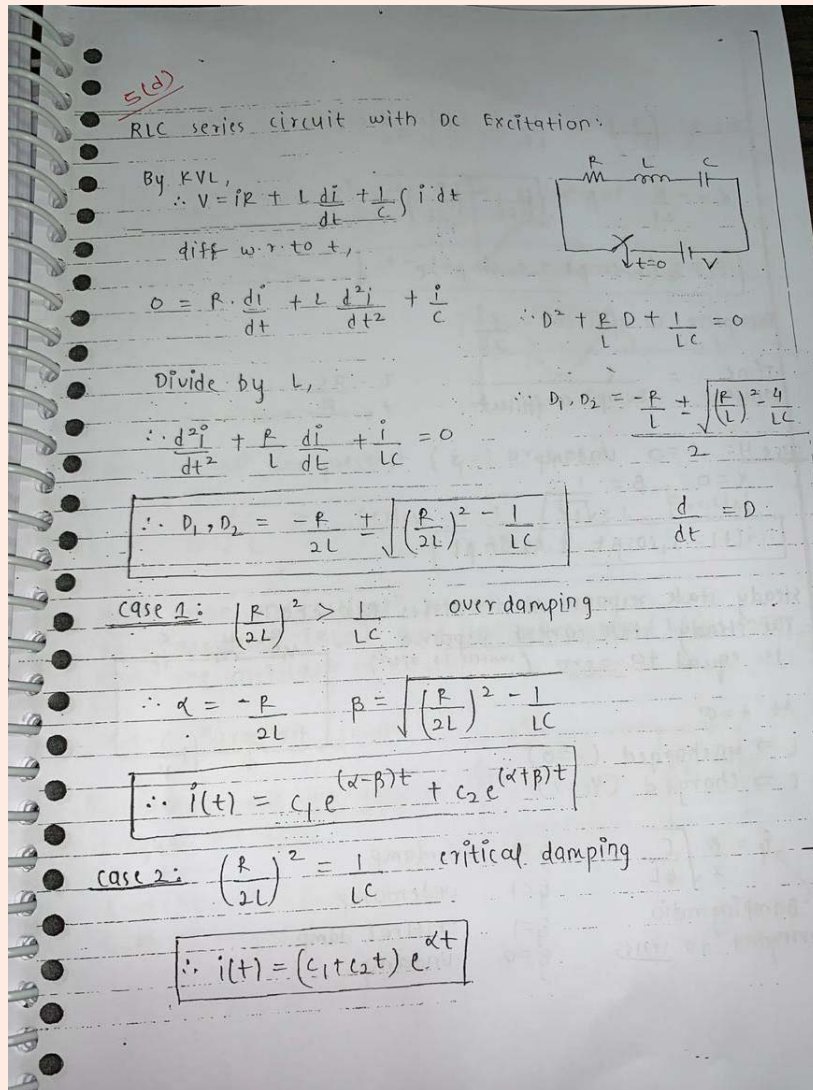 5(d)
RLC series circuit with DC Excitation:
R L C
t=0 V
By KVL,
∴ V = iR + L di/dt + 1/C ∫ i dt
diff w.r.to t,
0 = R. di/dt + L d²i/dt² + i/C
Divide by L,
∴ d²i/dt² + R/L di/dt + i/LC = 0
d/dt = D
∴ D² + R/L D + 1/LC = 0
∴ D₁, D₂ = (-R/L ± √((R/L)² - 4/LC)) / 2
∴ D₁, D₂ = -R/2L ± √((R/2L)² - 1/LC)
case 1: (R/2L)² > 1/LC over damping
∴ α = -R/2L β = √((R/2L)² - 1/LC)
∴ i(t) = c₁ e^(α-β)t + c₂ e^(α+β)t
case 2: (R/2L)² = 1/LC critical damping
∴ i(t) = (c₁+c₂t) e^αt